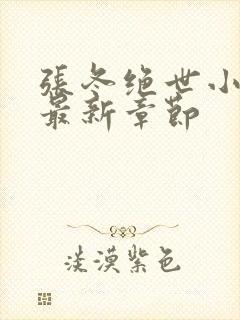 張冬绝世小
最新章節
淡漠紫色